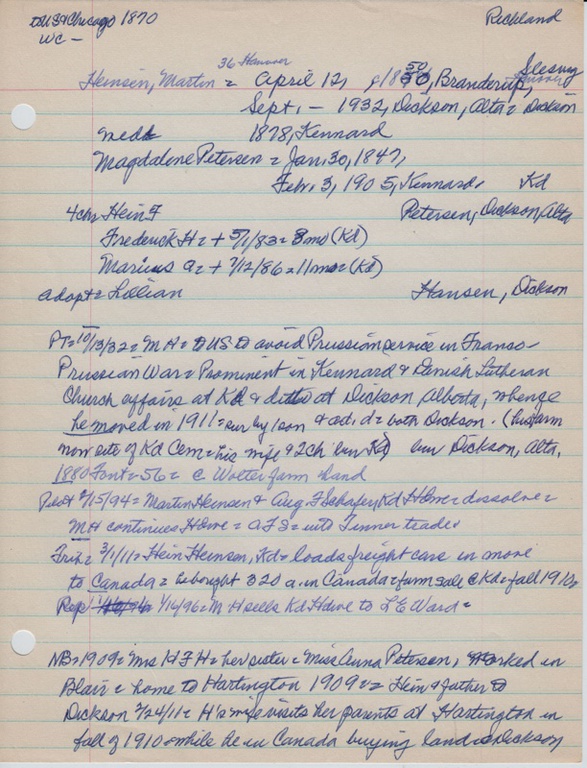 to US & Chicago 1870 Richland
WC -
36 Hanover Slesvig
Heinsen, Martin = April 12, 1850, Branderup,
Sept. - 1932, Dickson, Alta = Dickson
med 1878, Kennard
Magdalene Petersen = Jan. 30, 1847,
Febr. 3, 1905, Kennard. Kd
4 chr Hein F Petersen, Dickson, Alta
Frederick H = + 5/1/83 = 8 mo (Kd)
Marius A = + 7/12/86 = 11 mo = (Kd)
adopt = Lillian Hansen, Dickson
PT = 10/13/32 = MH = to US to avoid Prussian service in Franco-
Prussian War = Prominent in Kennard & Danish Lutheran
Church affairs at Kd & ditto at Dickson, Alberta, whence
he moved in 1911 = sur by 1 son & ad. d = both Dickson. (his farm
now site of Kd Cem = his wife & 2 ch bur Kd) bur Dickson, Alta.
1880 Font = 56 = c Wolter farm hand
Pilot 2/15/94 = Martin Heinsen & Aug F Schafer, Kd Hdwe = dissolve =
MH continues Hdwe = AFS = into Tinner trade.
Trib = 3/1/11 = Hein Heinsen, Kd = loads freight care in move
to Canada = he bought 320 a. in Canada = farm sale @ Kd = fall 1910.
Rep 1/16/96 = M H sells Kd Hdwe to L E Ward =
NB = 1909 = Mrs H F H = her sister = Miss Anna Petersen, worked in
Blair = home to Hartington 1909 = Hein & father to
Dickson 2/24/11 = H's wife visits her parents at Hartington in
fall of 1910 = while he in Canada buying land @ Dickson